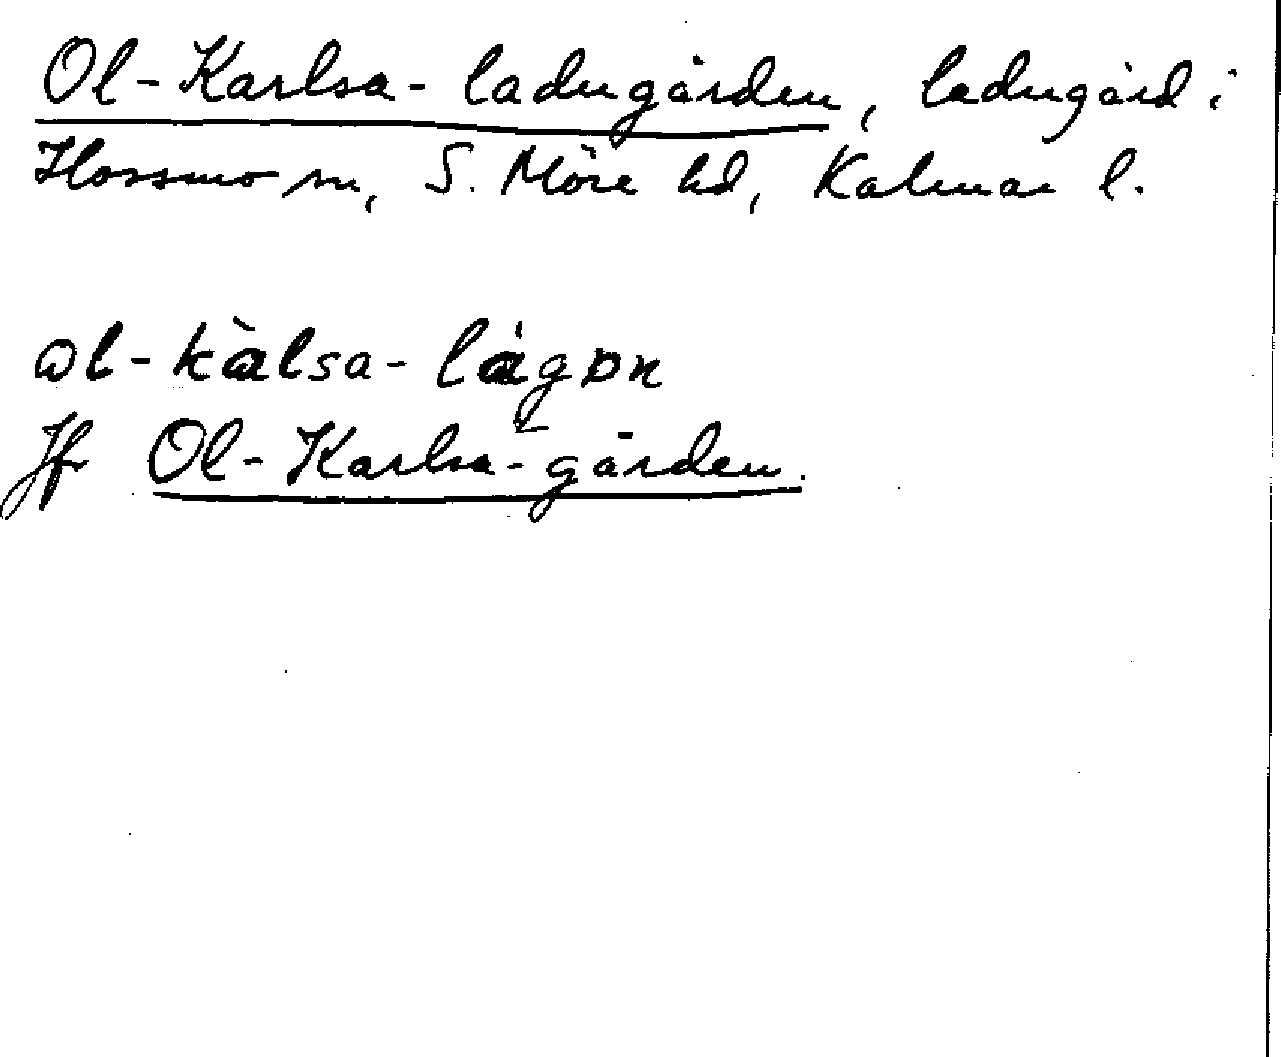 Ol-Karlsa-ladugården, ladugård i
Hossmo sn, S. Möre hd, Kalmar l.
ɷl-kàlsa-lágɒn
Jfr Ol-Karlsa-gården.